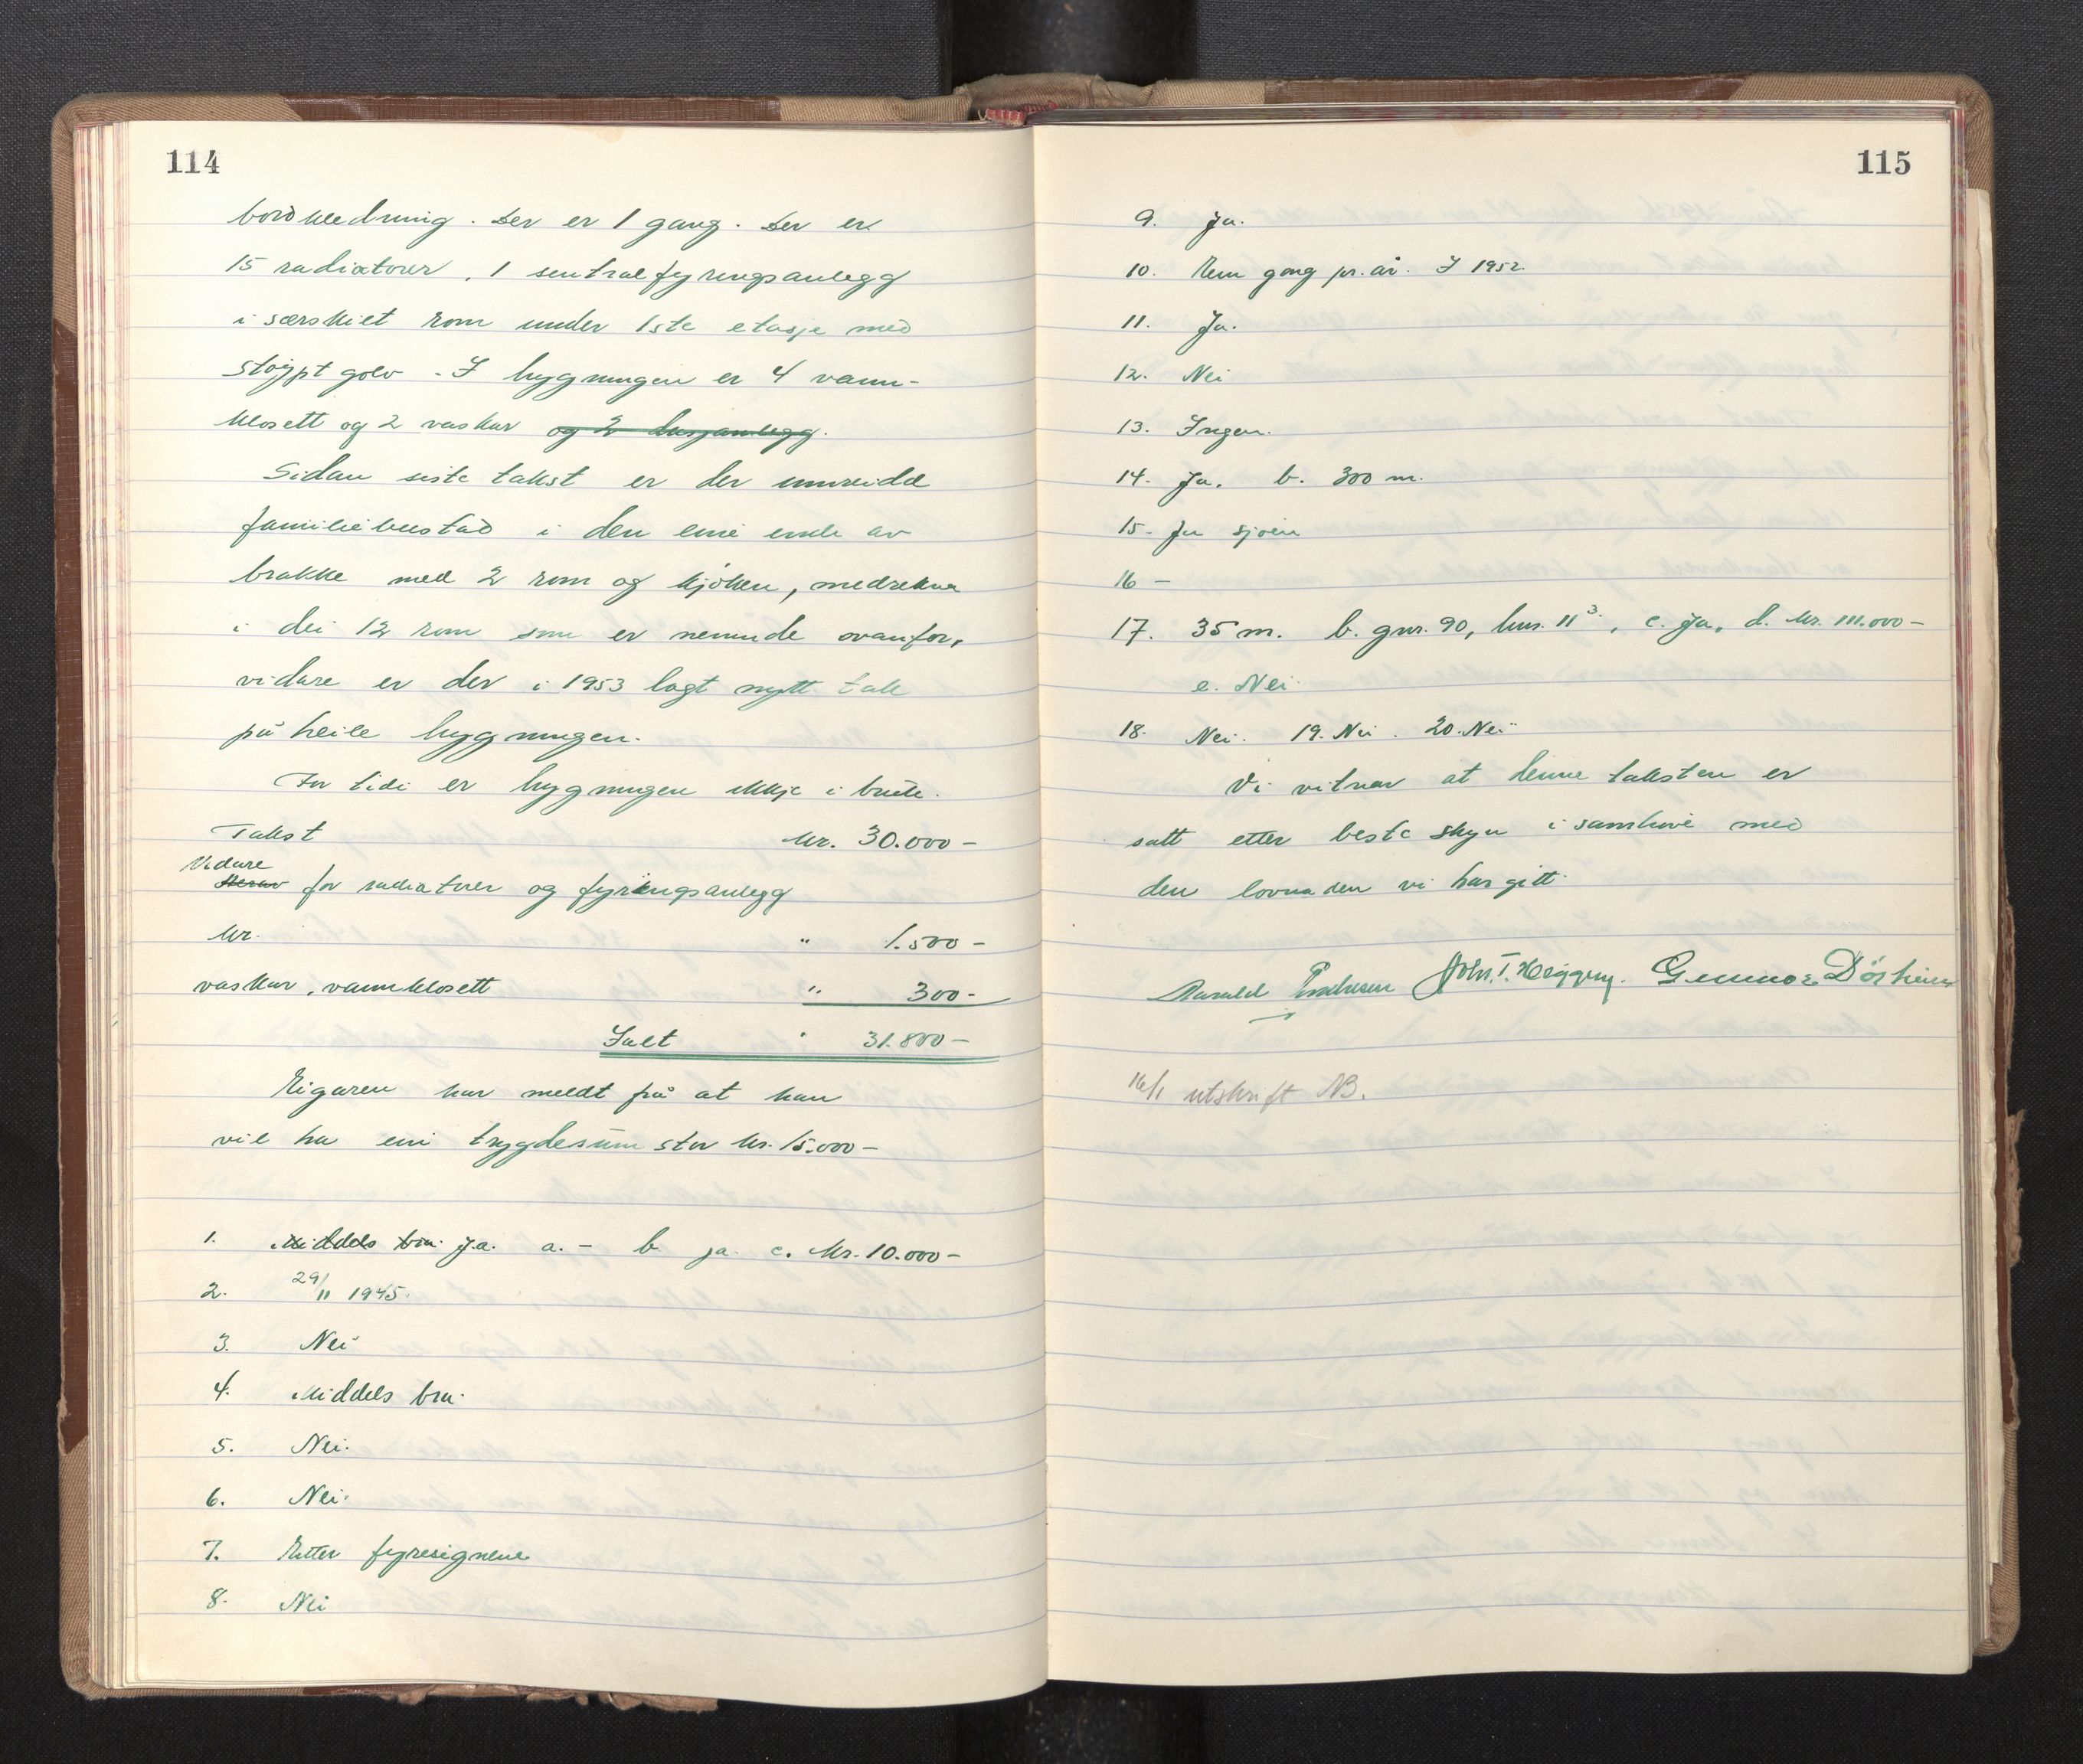 114
bordkledning. Der er 1 gang. Der er
15 radiatorer, 1 sentralfyringsanlegg
i særskilt rom under 1ste etasje med
støypt golv - I bygningen er 4 vann-
klosett og 2 vaskar og 2 dusjanlegg.
Sidan siste takst er der innreidd
familiebustad i den eine ende av
brakke med 2 rom og kjøken, medrekna
i dei 12 rom som er nemnde ovanfor,
vidare er der i 1953 lagt nytt tak
på heile bygningen.
For tidi er bygningen ikkje i bruk.
Takst kr. 30.000 -
Vidare
Herav for radiatorer og fyringsanlegg
kr. " 1.500 -
vaskar, vannklosett " 300 -
Ialt " 31.800 -
Eigaren har meldt frå at han
vil ha ein trygdesum stor kr. 15.000 -
1. Middels bra. Ja. a. - b ja c. kr. 10.000 -
2. 29/11 1945.
3. Nei
4. Middels bra.
5. Nei.
6. Nei.
7. Etter fyresegnene
8. Nei
115
9. Ja.
10. Ein gong pr. år. I 1952.
11. Ja.
12. Nei
13. Ingen.
14. Ja. b. 300 m.
15. Ja sjøen
16 -
17. 35 m. b. gnr. 90, bnr. 11³, c. Ja, d. kr. 111.000 -
e. Nei.
18. Nei. 19. Nei. 20. Nei
Vi vitnar at denne taksten er
satt etter beste skyn i samhøve med
den lovnaden vi har gitt.
Harald Joh. T. Heggøy. Gunnar
16/1 utskrift NB.